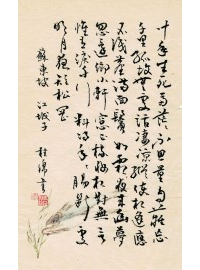 十年生死兩茫茫不思量自難忘
千里孤墳無處話淒涼縱使相逢應
不識塵滿面鬢如霜夜來幽夢
忽還鄉小軒窗正梳妝相顧無言
惟有淚千行料得年年腸斷處
明月夜短松岡
蘇東坡 江城子